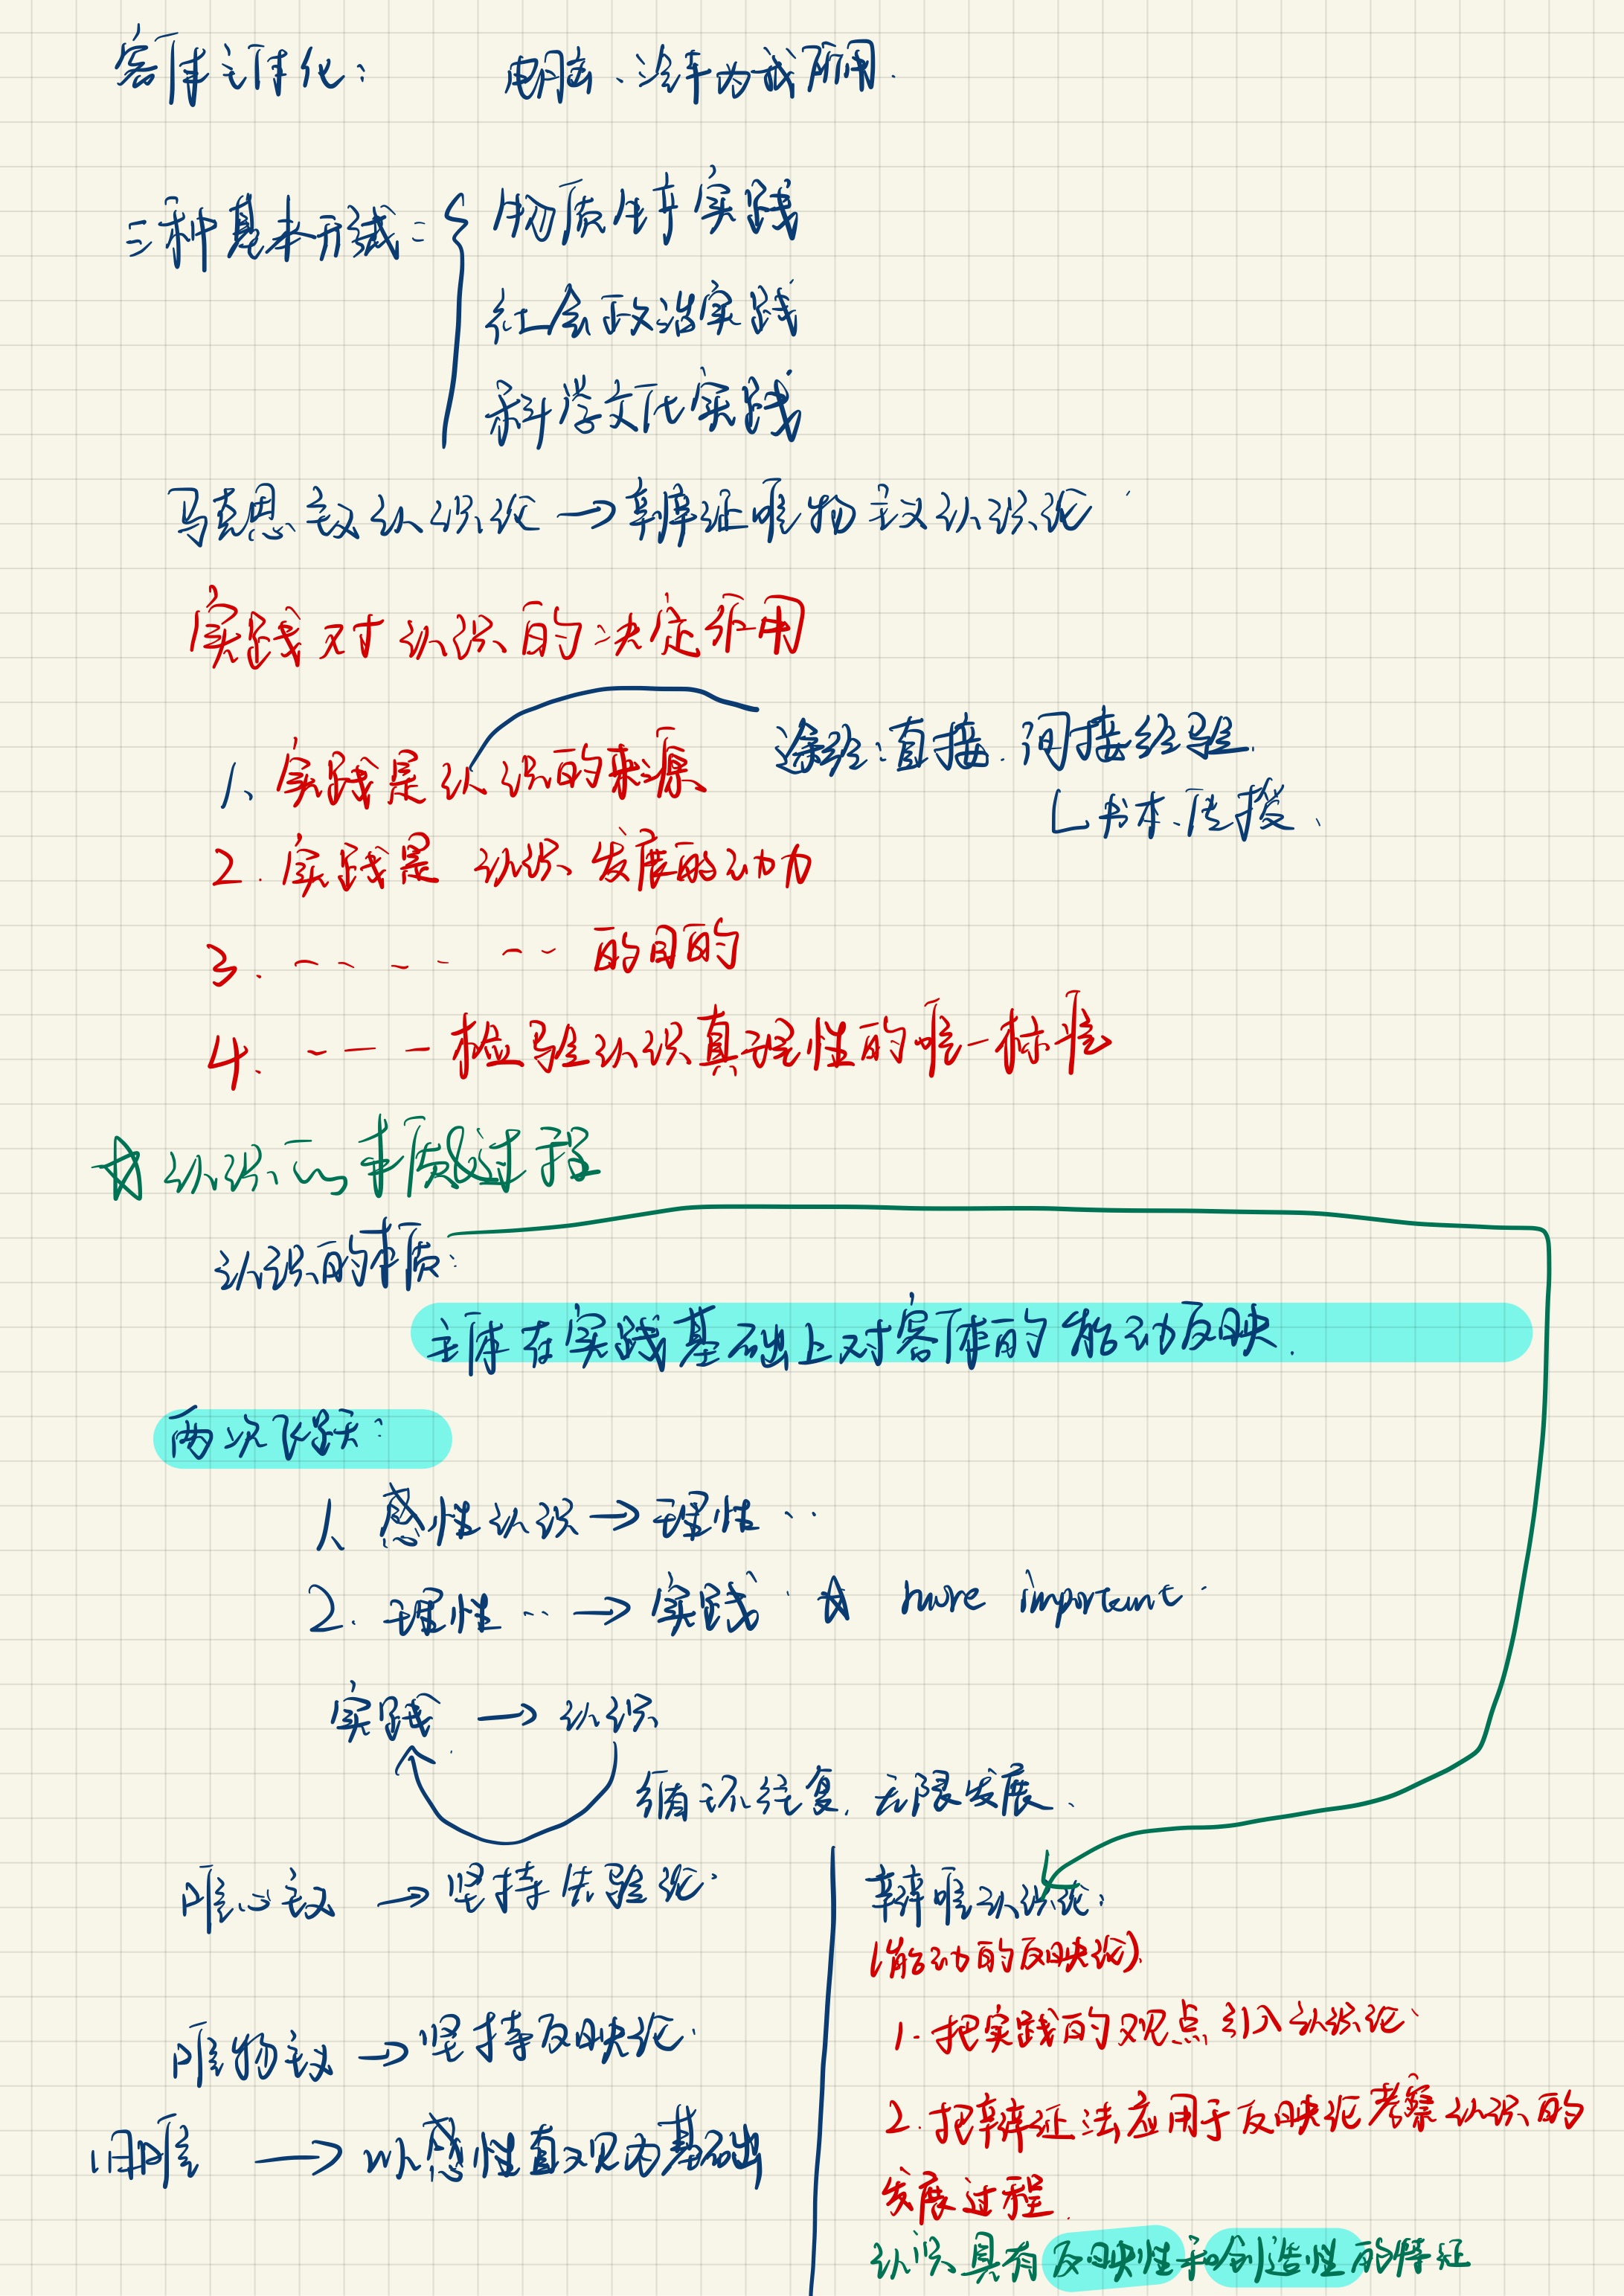 客体主体化： 电脑、汽车为我所用.
三种基本形式：
物质生产实践
社会政治实践
科学文化实践
马克思主义认识论→辩证唯物主义认识论
实践对认识的决定作用
1、实践是认识的来源 途径：直接.间接经验.
书本、传授、
2.实践是 认识发展的动力
3. - - - - -- 的目的
4. - - - - 检验认识真理性的唯一标准
☆认识的本质&过程
认识的本质：
主体在实践基础上对客体的能动反映.
两次飞跃：
1、感性认识→理性..
2.理性..→实践.☆ more important.
实践 → 认识
循环往复.无限发展、
唯心主义 → 坚持先验论.
唯物主义→坚持反映论.
旧唯 → 以感性直观为基础
辩唯认识论：
(能动的反映论).
1.把实践的观点引入认识论、
2.把辩证法应用于反映论考察认识的
发展过程.
认识具有反映性和创造性的特征